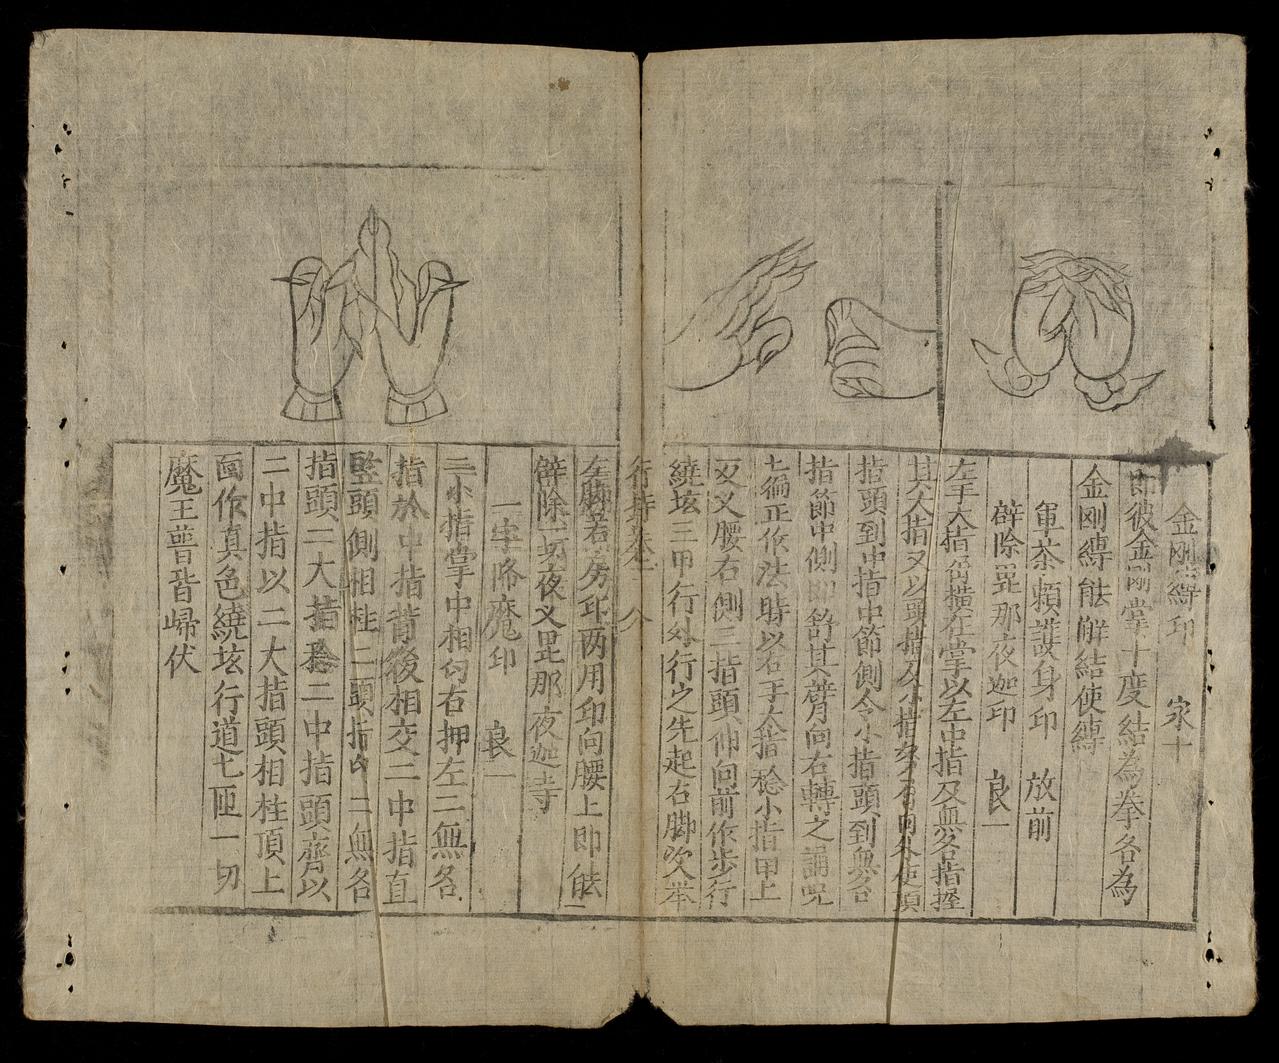 金剛縛印 家十
即彼金剛掌十度結為拳各為
金剛縛能解結使縛
軍荼頼護身印 放前
辟除毘那夜迦印 良一
左手大指 橫在掌以左中指及無名指握
其大指又以頭指及小指 使頭
指頭到中指中節側令小指頭到無名
指節中側即舒其臂向右轉之誦呪
七徧正作法時以右手大指捻小指甲上
叉腰右側三指頭仰向前作步行
繞垓三甲行外行之先起右脚次举
行持卷
左脚若 房印两用印向腰上即能
辟除一切夜叉毘那夜迦等
一字降魔印 良一
二小指掌中相勾右押左二無名
指於中指背後相交二中指直
竪頭側相柱二頭指 二無名
指頭二大指捻二中指頭齊以
二中指以二大指頭相柱頂上
面作真色繞垓行道七匝一切
魔王普皆歸伏